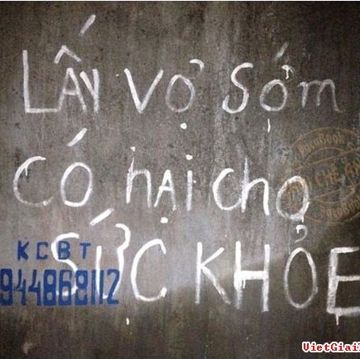 LẤY VỢ SỚM
CÓ HẠI CHO
SỨC KHỎE
KCBT
944868112
VietGiaiT